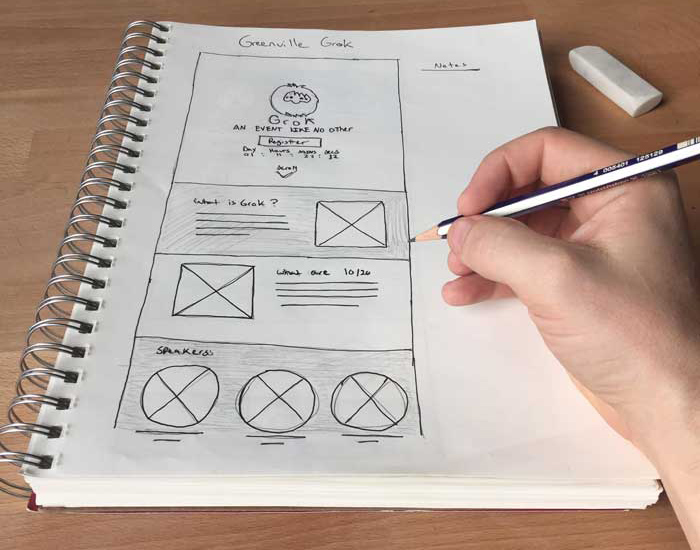 Greenville Grok
Notes
Grok
AN EVENT LIKE NO OTHER
Register
Day Hours mins secs
Scroll
What is Grok?
What are 10/20
Speakers:
4 005401 125129